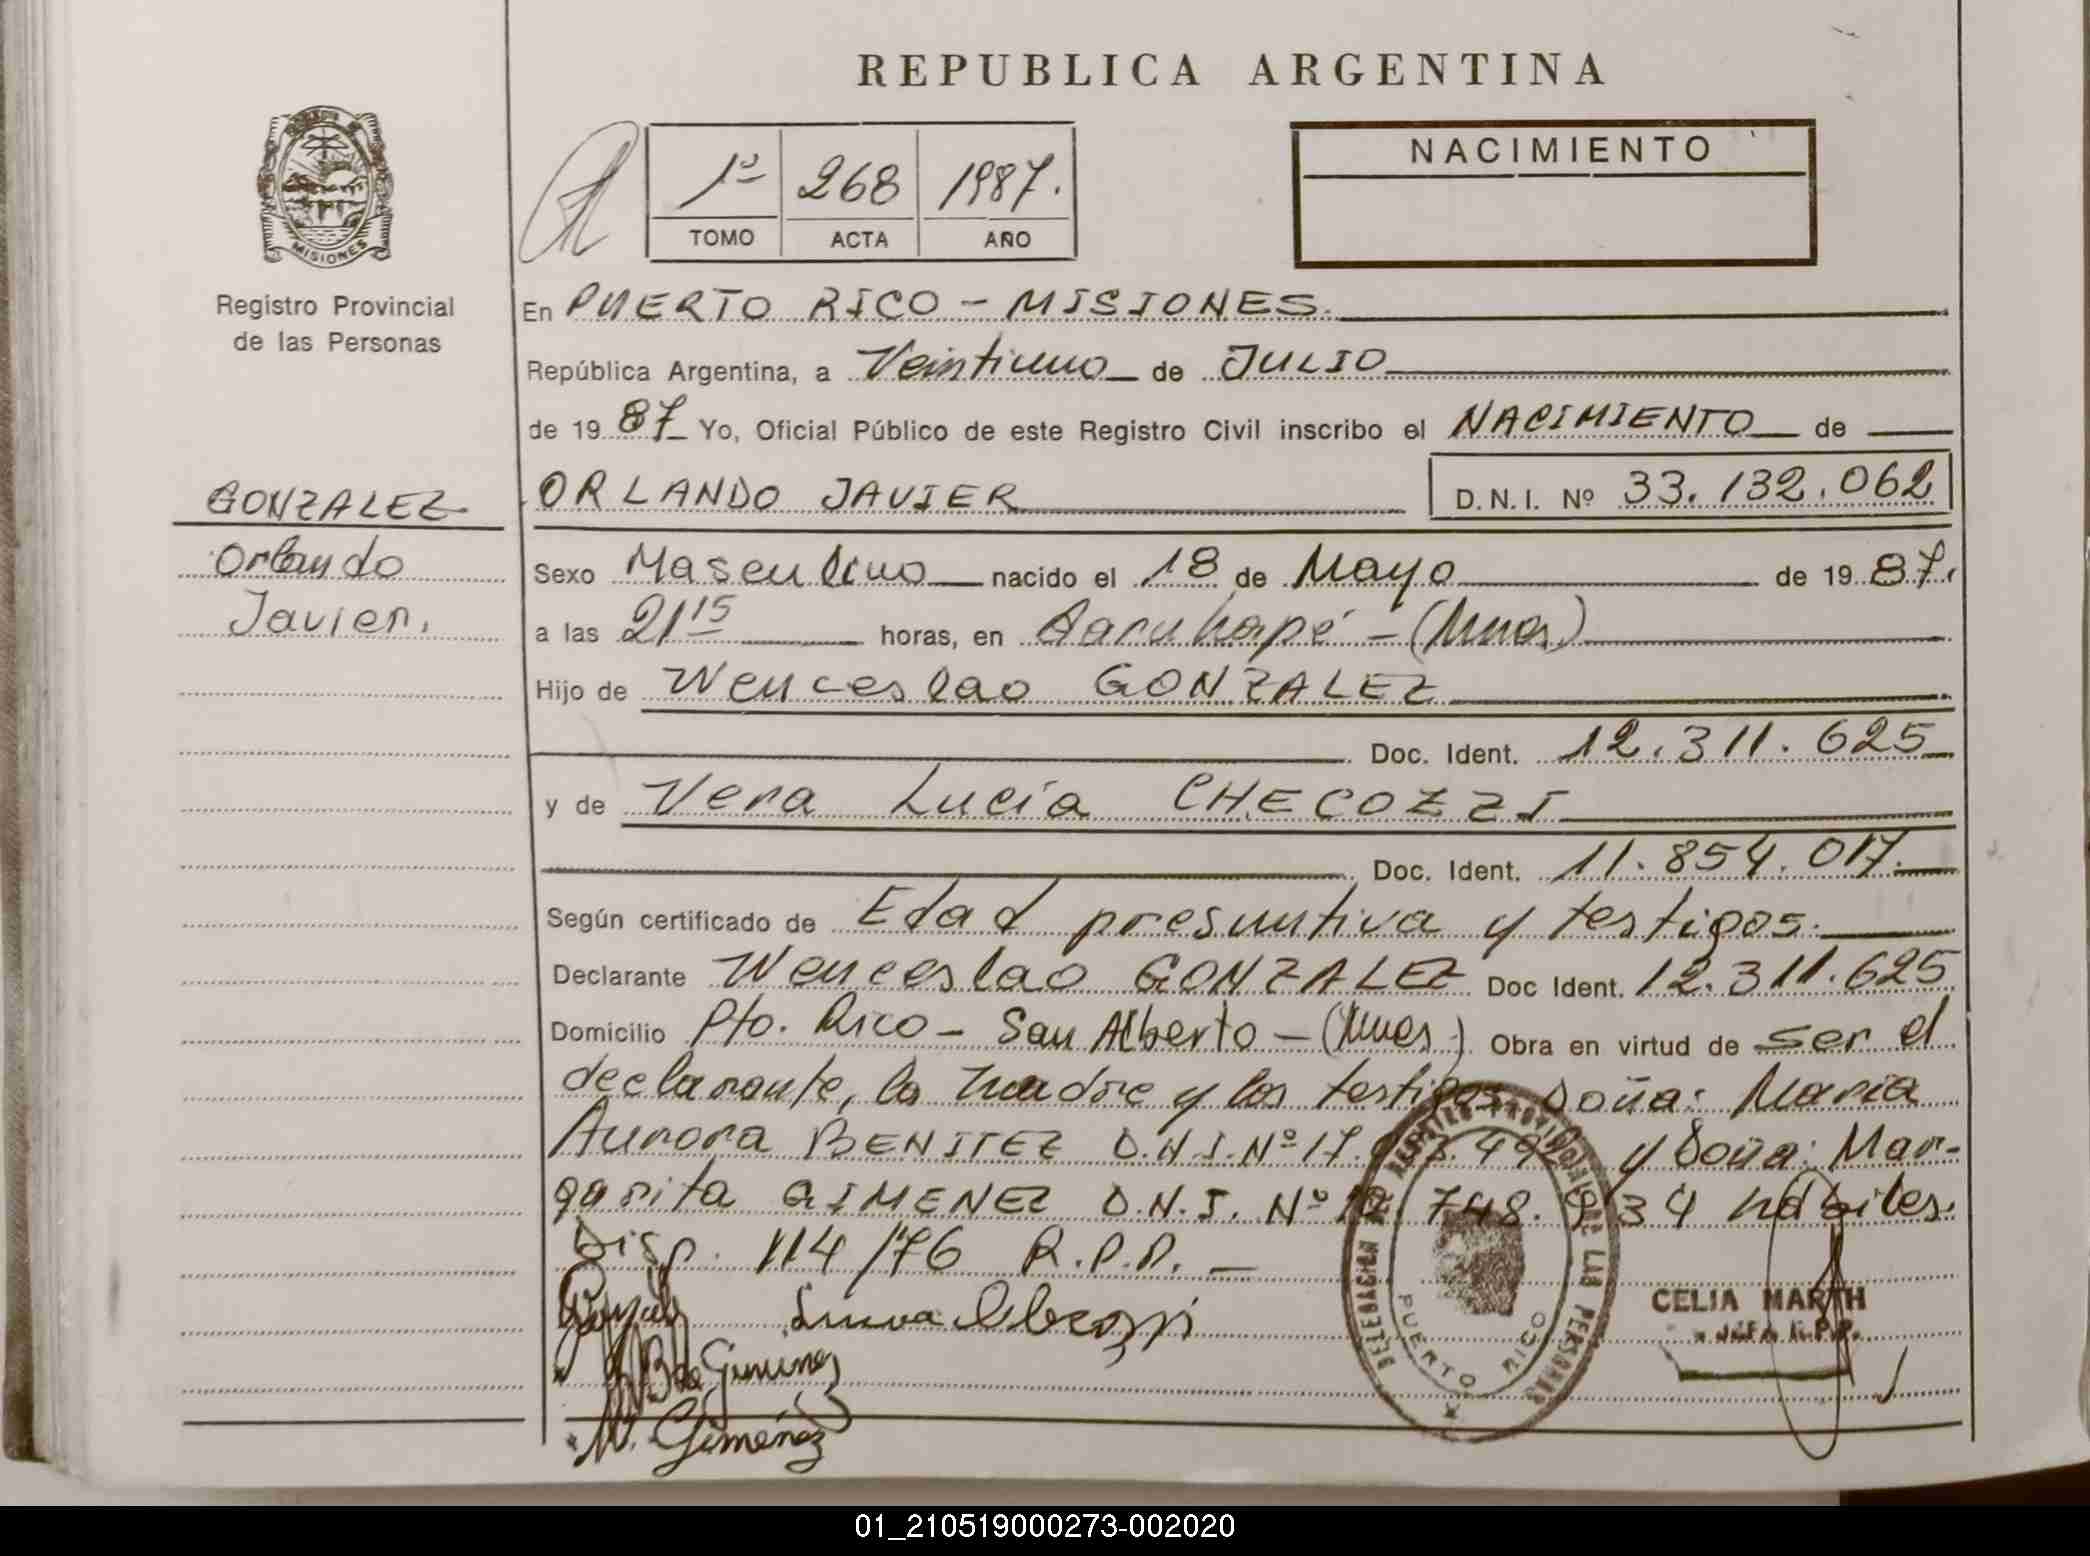 REPUBLICA ARGENTINA
1º 268 1987.
TOMO ACTA AÑO
NACIMIENTO
MISIONES
Registro Provincial
de las Personas
En PUERTO RICO - MISIONES.
República Argentina, a Veintiuno de JULIO
de 19 87 Yo, Oficial Público de este Registro Civil inscribo el NACIMIENTO de
GONZALEZ
Orlando
Javier.
ORLANDO JAVIER D.N.I. Nº 33.132.062
Sexo Masculino nacido el 18 de Mayo de 19 87.
a las 21 15 horas, en Garuhapé - (Mnes)
Hijo de Wenceslao GONZALEZ
Doc. Ident. 12.311.625
y de Vera Lucía CHECOZZI
Doc. Ident. 11.854.017.
Según certificado de Edad presuntiva y testigos.
Declarante Wenceslao GONZALEZ Doc Ident. 12.311.625
Domicilio Pto. Rico - San Alberto - (Mnes) Obra en virtud de ser el
declarante, la madre y los testigos Doña: Maria
Aurora BENITEZ D.N.I. Nº 17. y Doña: Mar-
garita GIMENEZ D.N.I. Nº 748. hábiles.
Disp. 114/76 R.P.P.
M. Giménez
DELEGACION REGISTRO PROVINCIAL DE LAS PERSONAS
PUERTO RICO
CELIA MARTH
JEFA R.P.P.
01_210519000273-002020